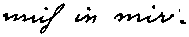 mich in mir: